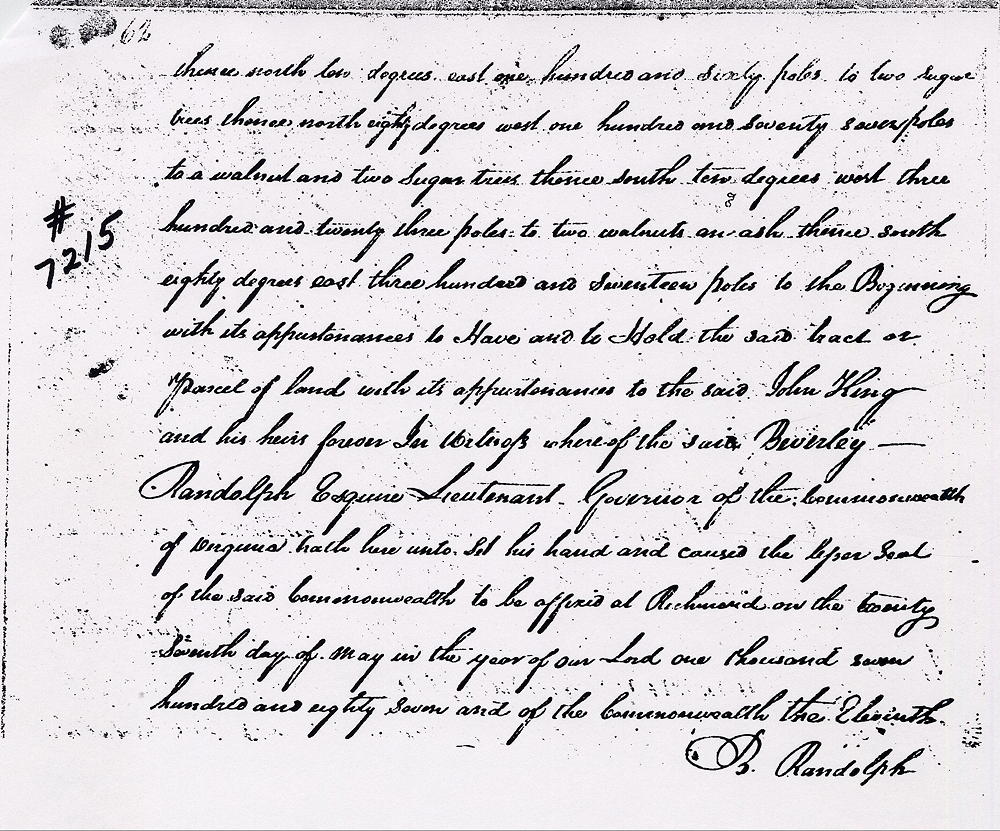 62
thence north ten degrees east one hundred and sixty poles to two sugar
trees thence north eighty degrees west one hundred and seventy seven poles
to a walnut and two Sugar trees thence south ten degrees west three
# 7215
hundred and twenty three poles to two walnuts an ash thence south
eighty degrees east three hundred and seventeen poles to the Beginning
with its appurtenances to Have and to Hold the said tract or
Parcel of land with its appurtenances to the said John King
and his heirs forever In Witness where of the said Beverley —
Randolph Esquire Lieutenant Governor of the Commonwealth
of Virginia hath here unto Set his hand and caused the lesser Seal
of the said Commonwealth to be affixed at Richmond on the twenty
Seventh day of May in the year of our Lord one thousand seven
hundred and eighty Seven and of the Commonwealth the Eleventh.
B. Randolph